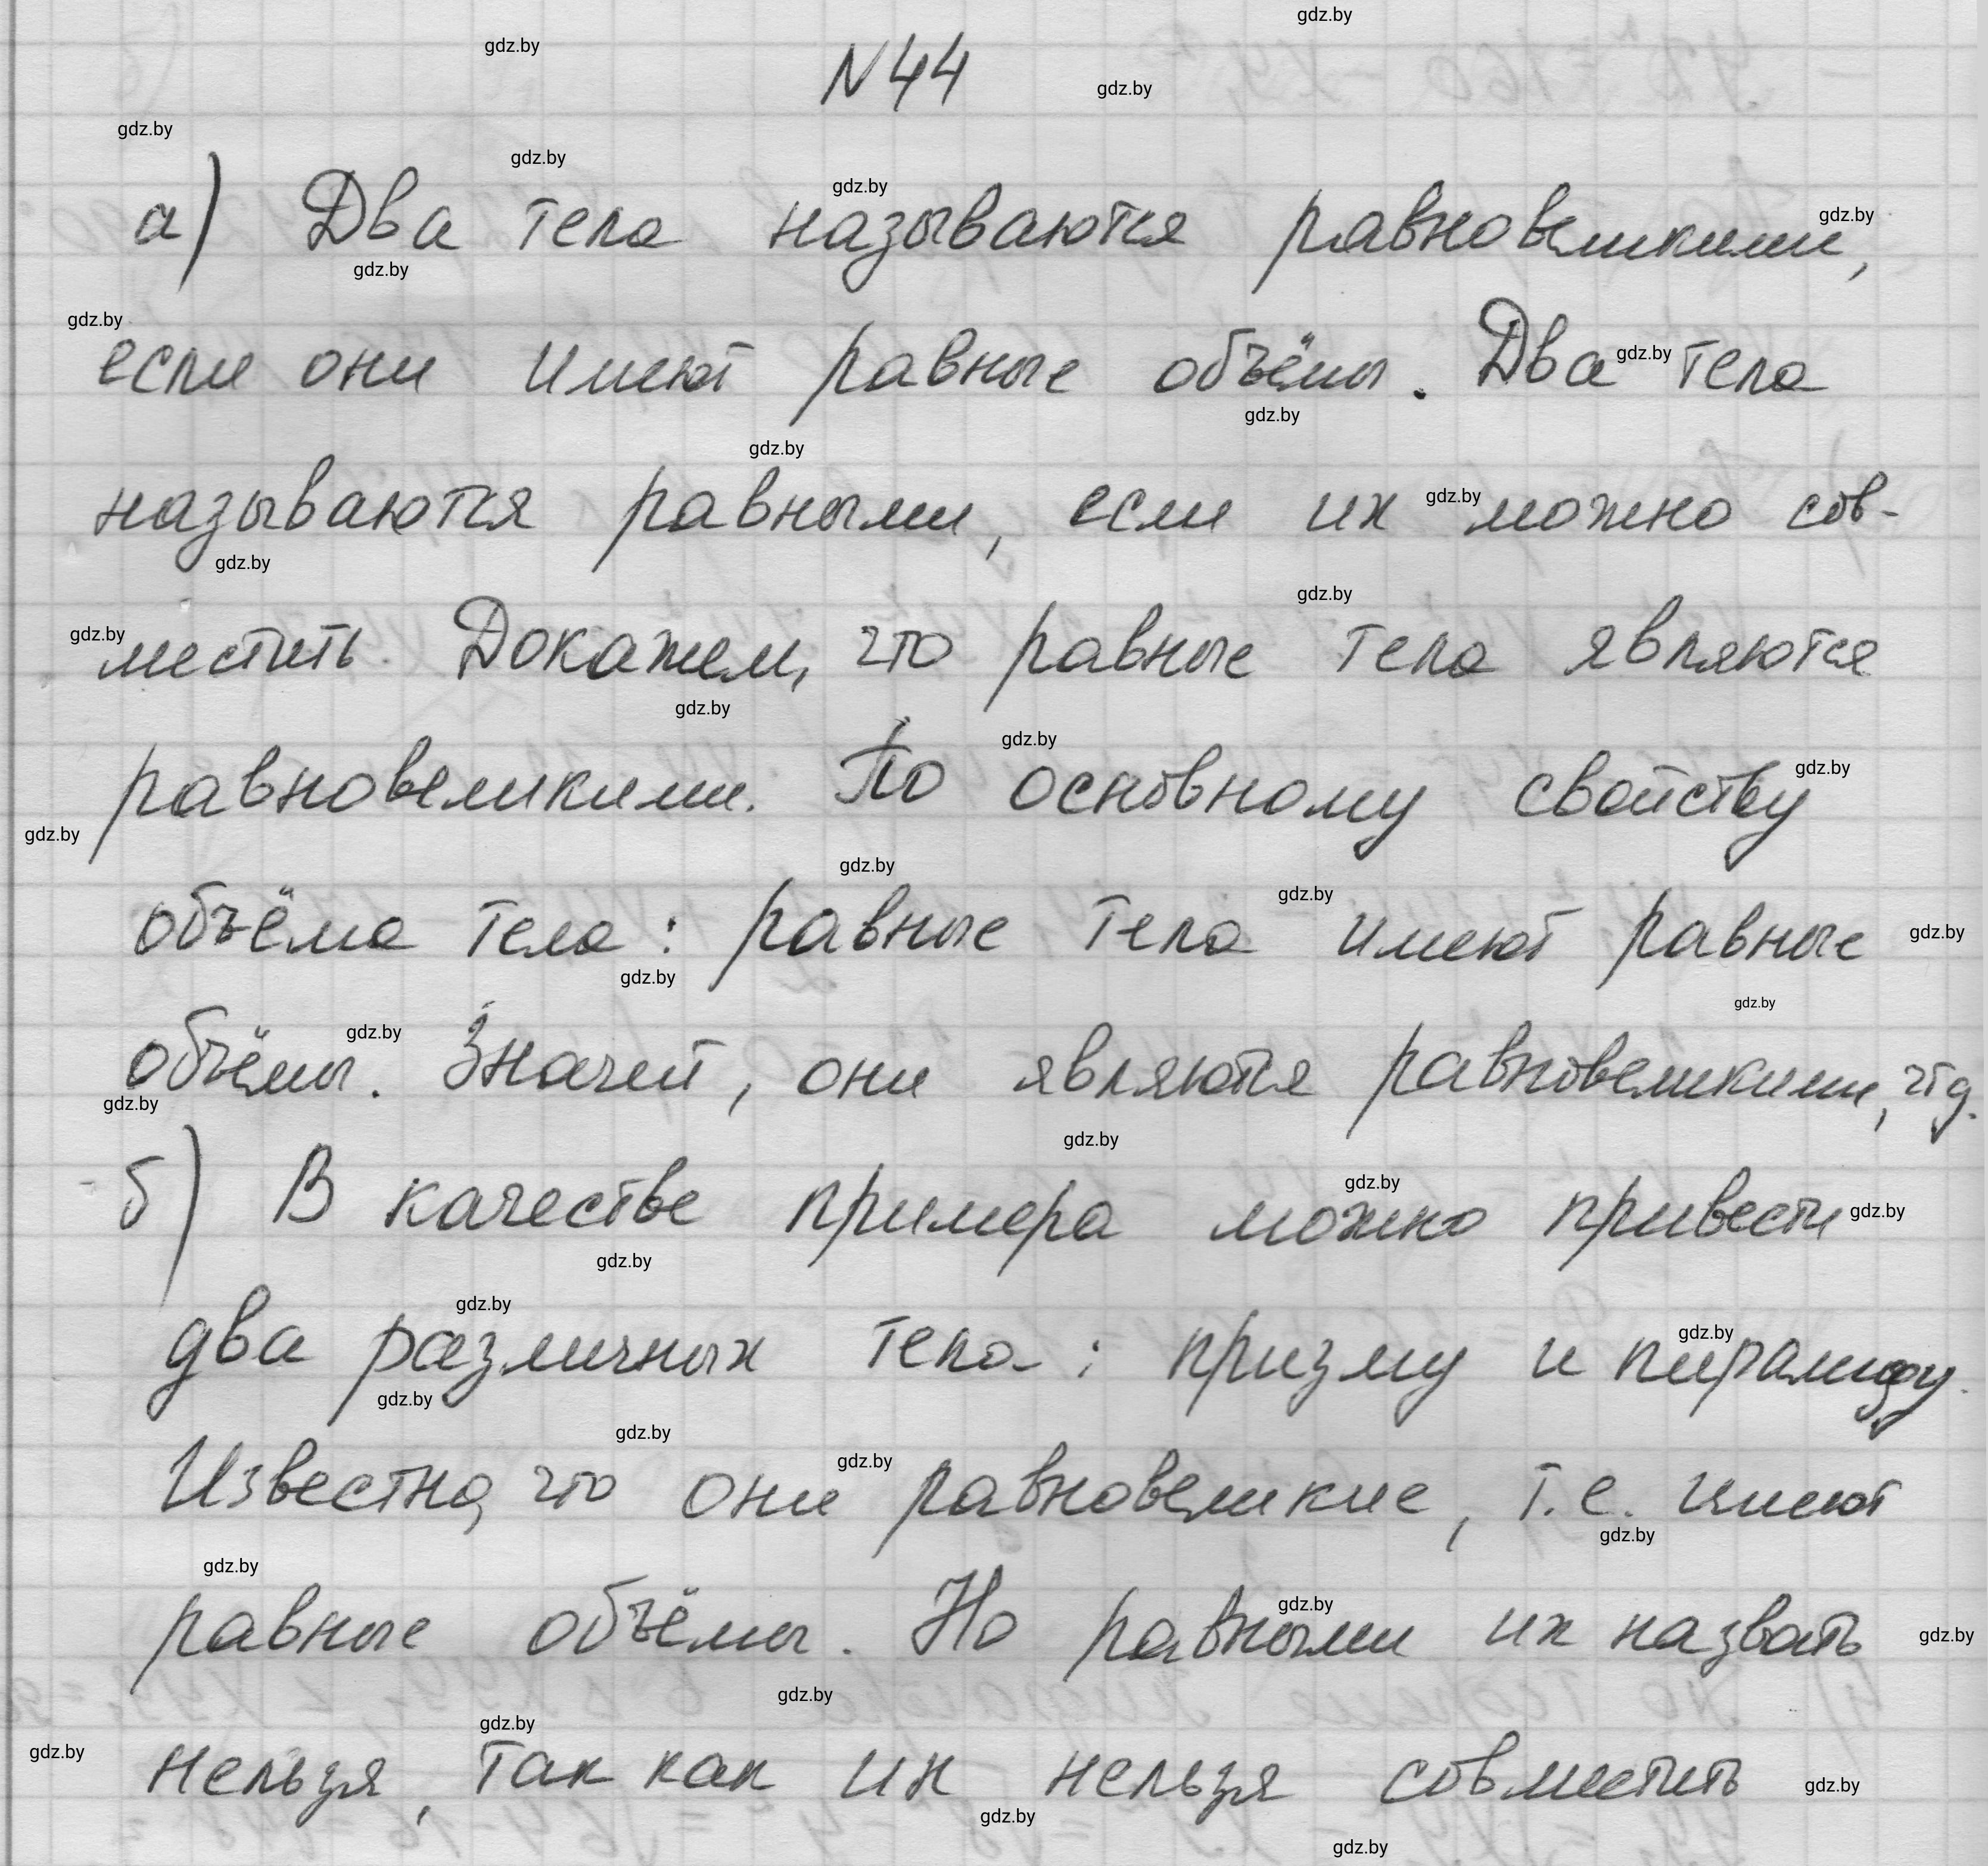 N 44
а) Два тела называются равновеликими,
если они имеют равные объёмы. Два тела
называются равными, если их можно сов-
местить. Докажем, что равные тела являются
равновеликими. По основному свойству
объёма тела: равные тела имеют равные
объёмы. Значит, они являются равновеликими, чтд.
б) В качестве примера можно привести
два различных тела: призму и пирамиду.
Известно, что они равновеликие, т.е. имеют
равные объёмы. Но равными их назвать
нельзя, так как их нельзя совместить
gdz.by